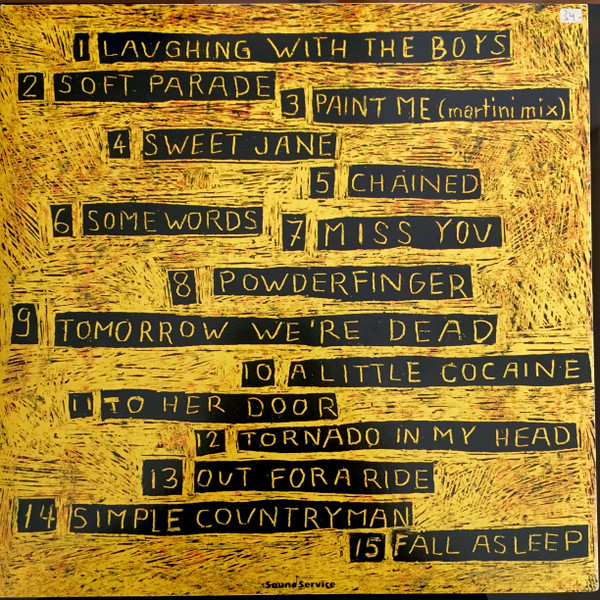 1 LAUGHING WITH THE BOYS
2 SOFT PARADE
3 PAINT ME (martini mix)
4 SWEET JANE
5 CHAINED
6 SOME WORDS
7 MISS YOU
8 POWDERFINGER
9 TOMORROW WE'RE DEAD
10 A LITTLE COCAINE
11 TO HER DOOR
12 TORNADO IN MY HEAD
13 OUT FOR A RIDE
14 SIMPLE COUNTRYMAN
15 FALL ASLEEP
Sound Service